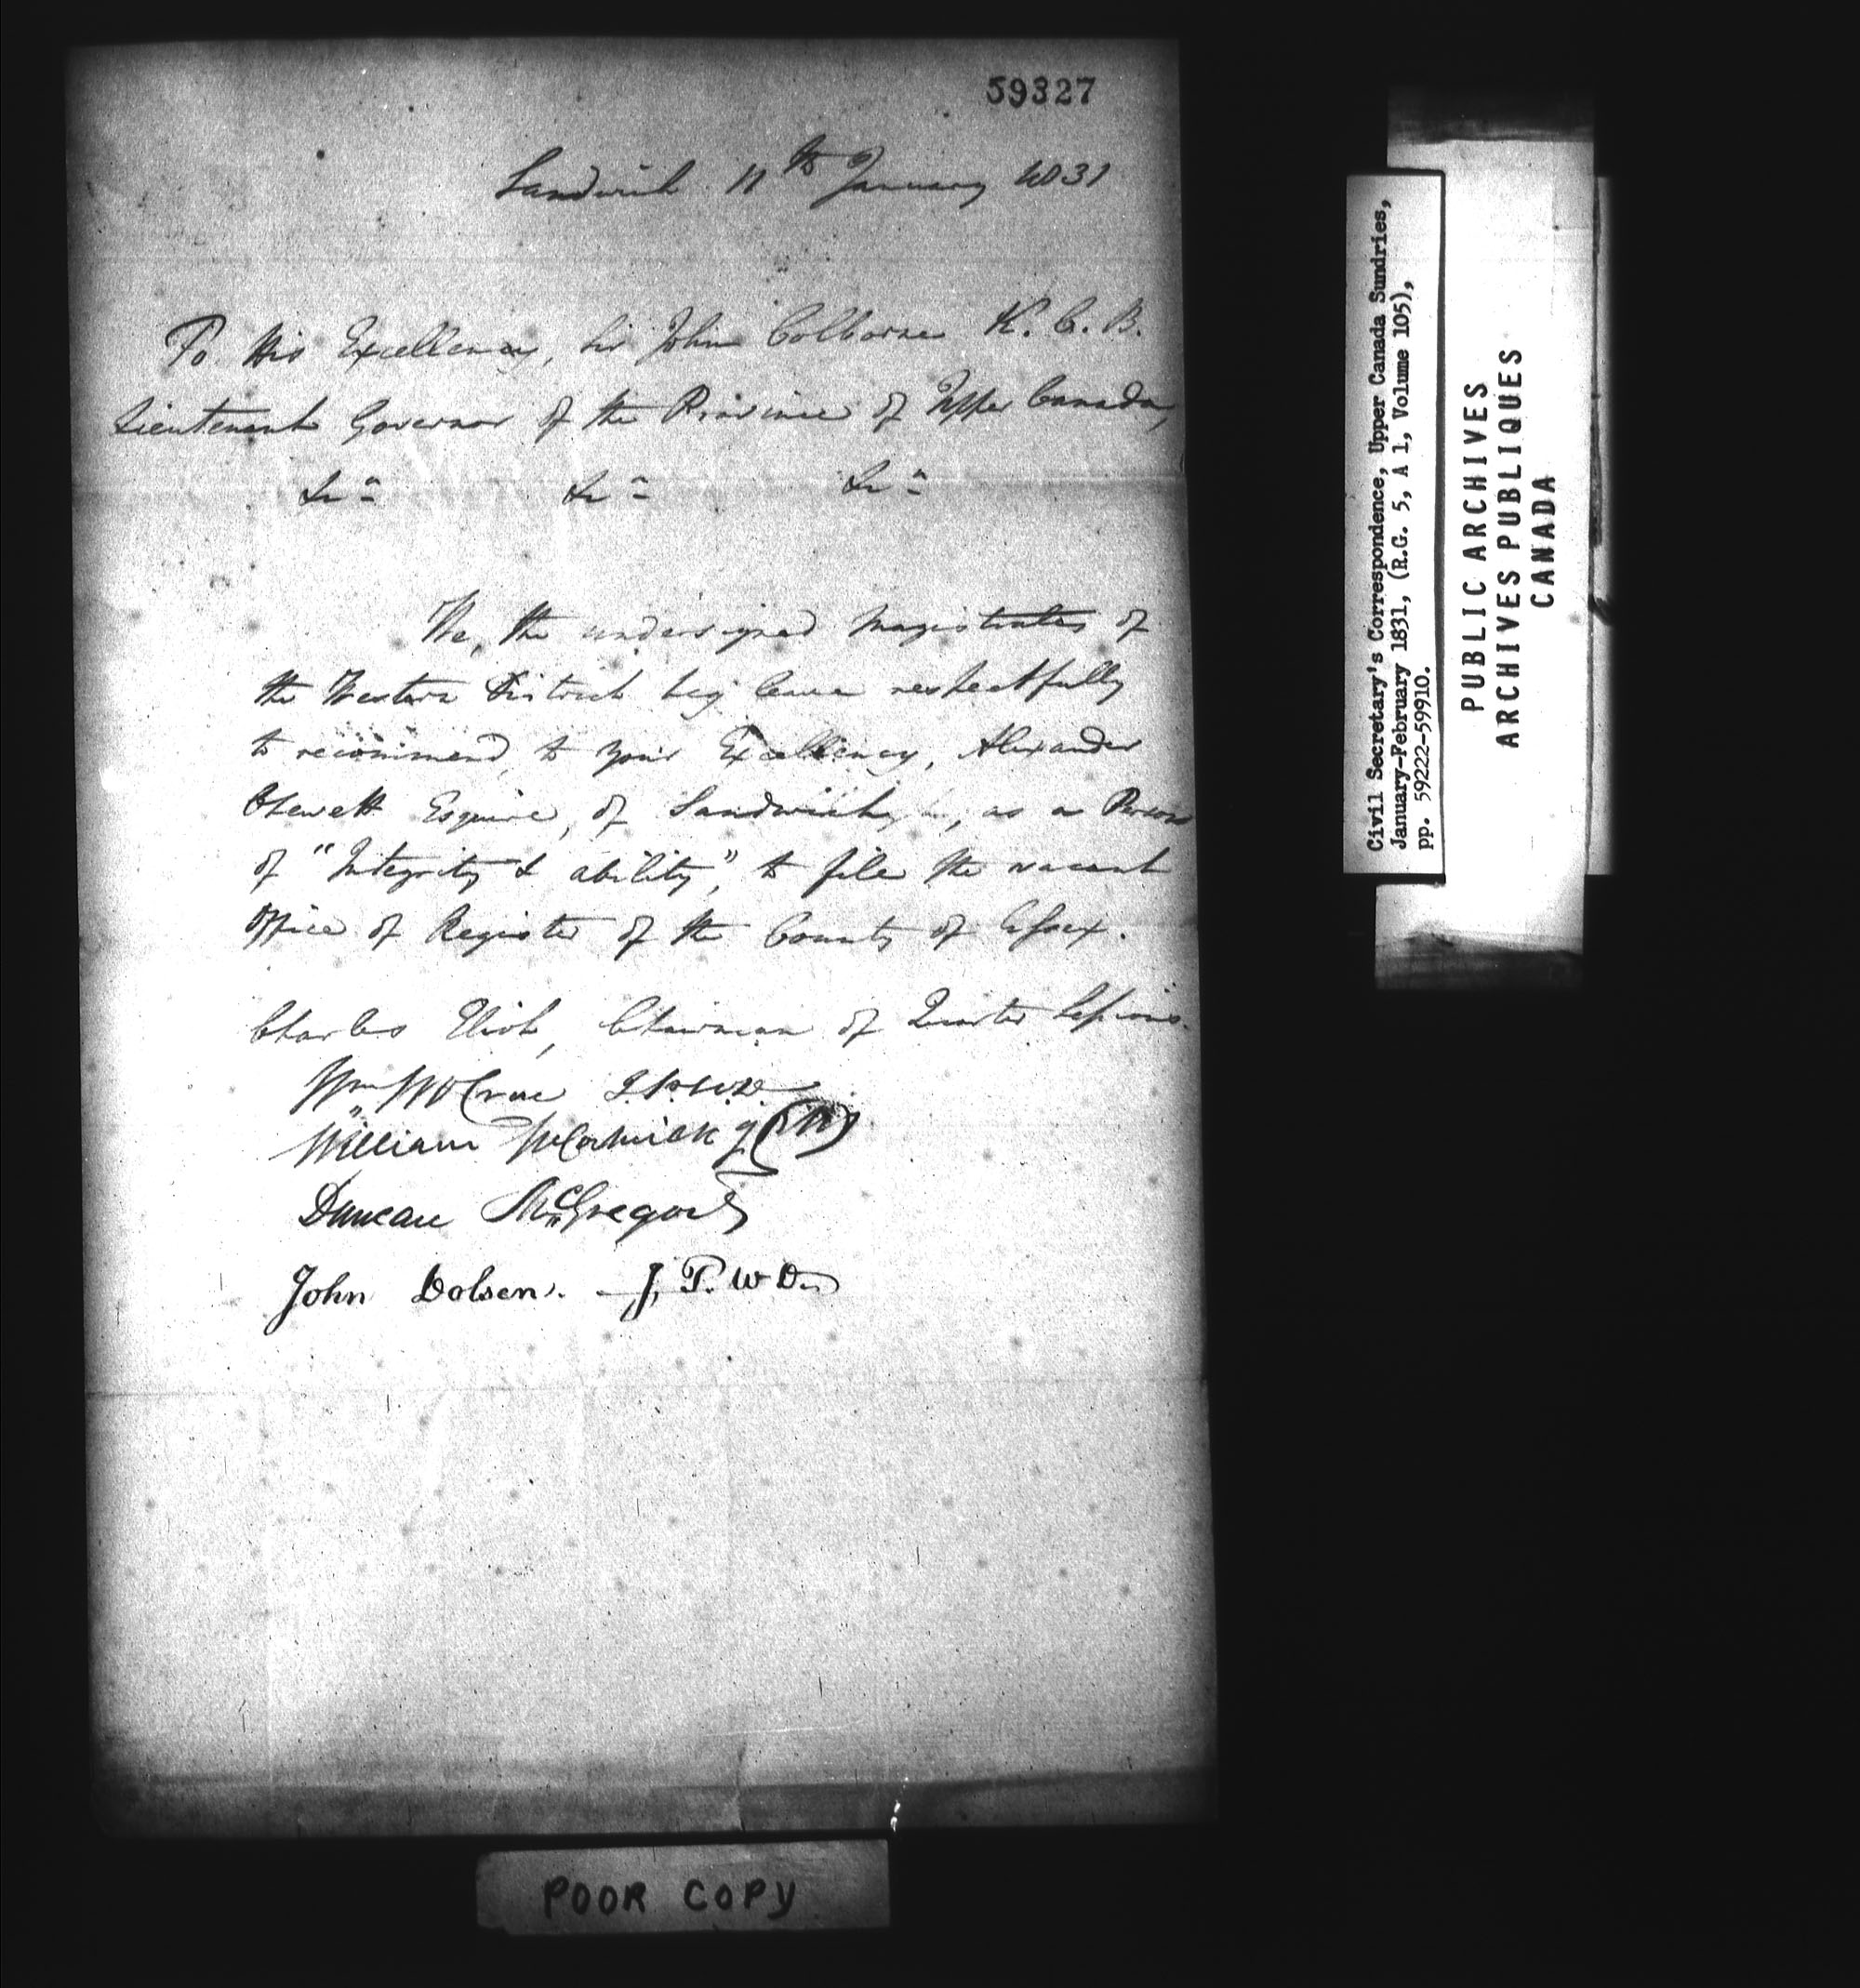 59327
Sandwich 11th January 1831
To His Excellency, Sir John Colborne K. C. B.
Lieutenant Governor of the Province of Upper Canada,
&ca &ca &ca
We, the undersigned Magistrates of
the Western District beg leave respectfully
to recommend, to your Excellency, Alexander
Chewett Esquire, of Sandwich, as a Person
of "Integrity & ability", to file the vacant
Office of Register of the County of Essex.
Charles Eliot, Chairman of Quarter Sessions.
Wm McCrae J.P.W.D.
William McCormick J
Duncan McGregor
John Dolsen. J. P. W D
POOR COPY
Civil Secretary's Correspondence, Upper Canada Sundries,
January-February 1831, (R.G. 5, A 1, Volume 105),
pp. 59222-59910.
PUBLIC ARCHIVES
ARCHIVES PUBLIQUES
CANADA